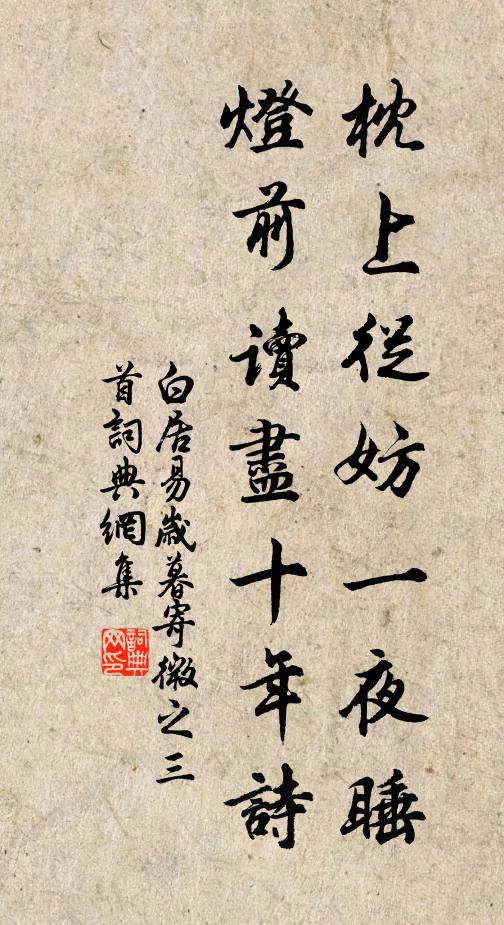 枕上從妨一夜睡
燈前讀盡十年詩
白居易歲暮寄微之三
首詞典網集
詞典
网印